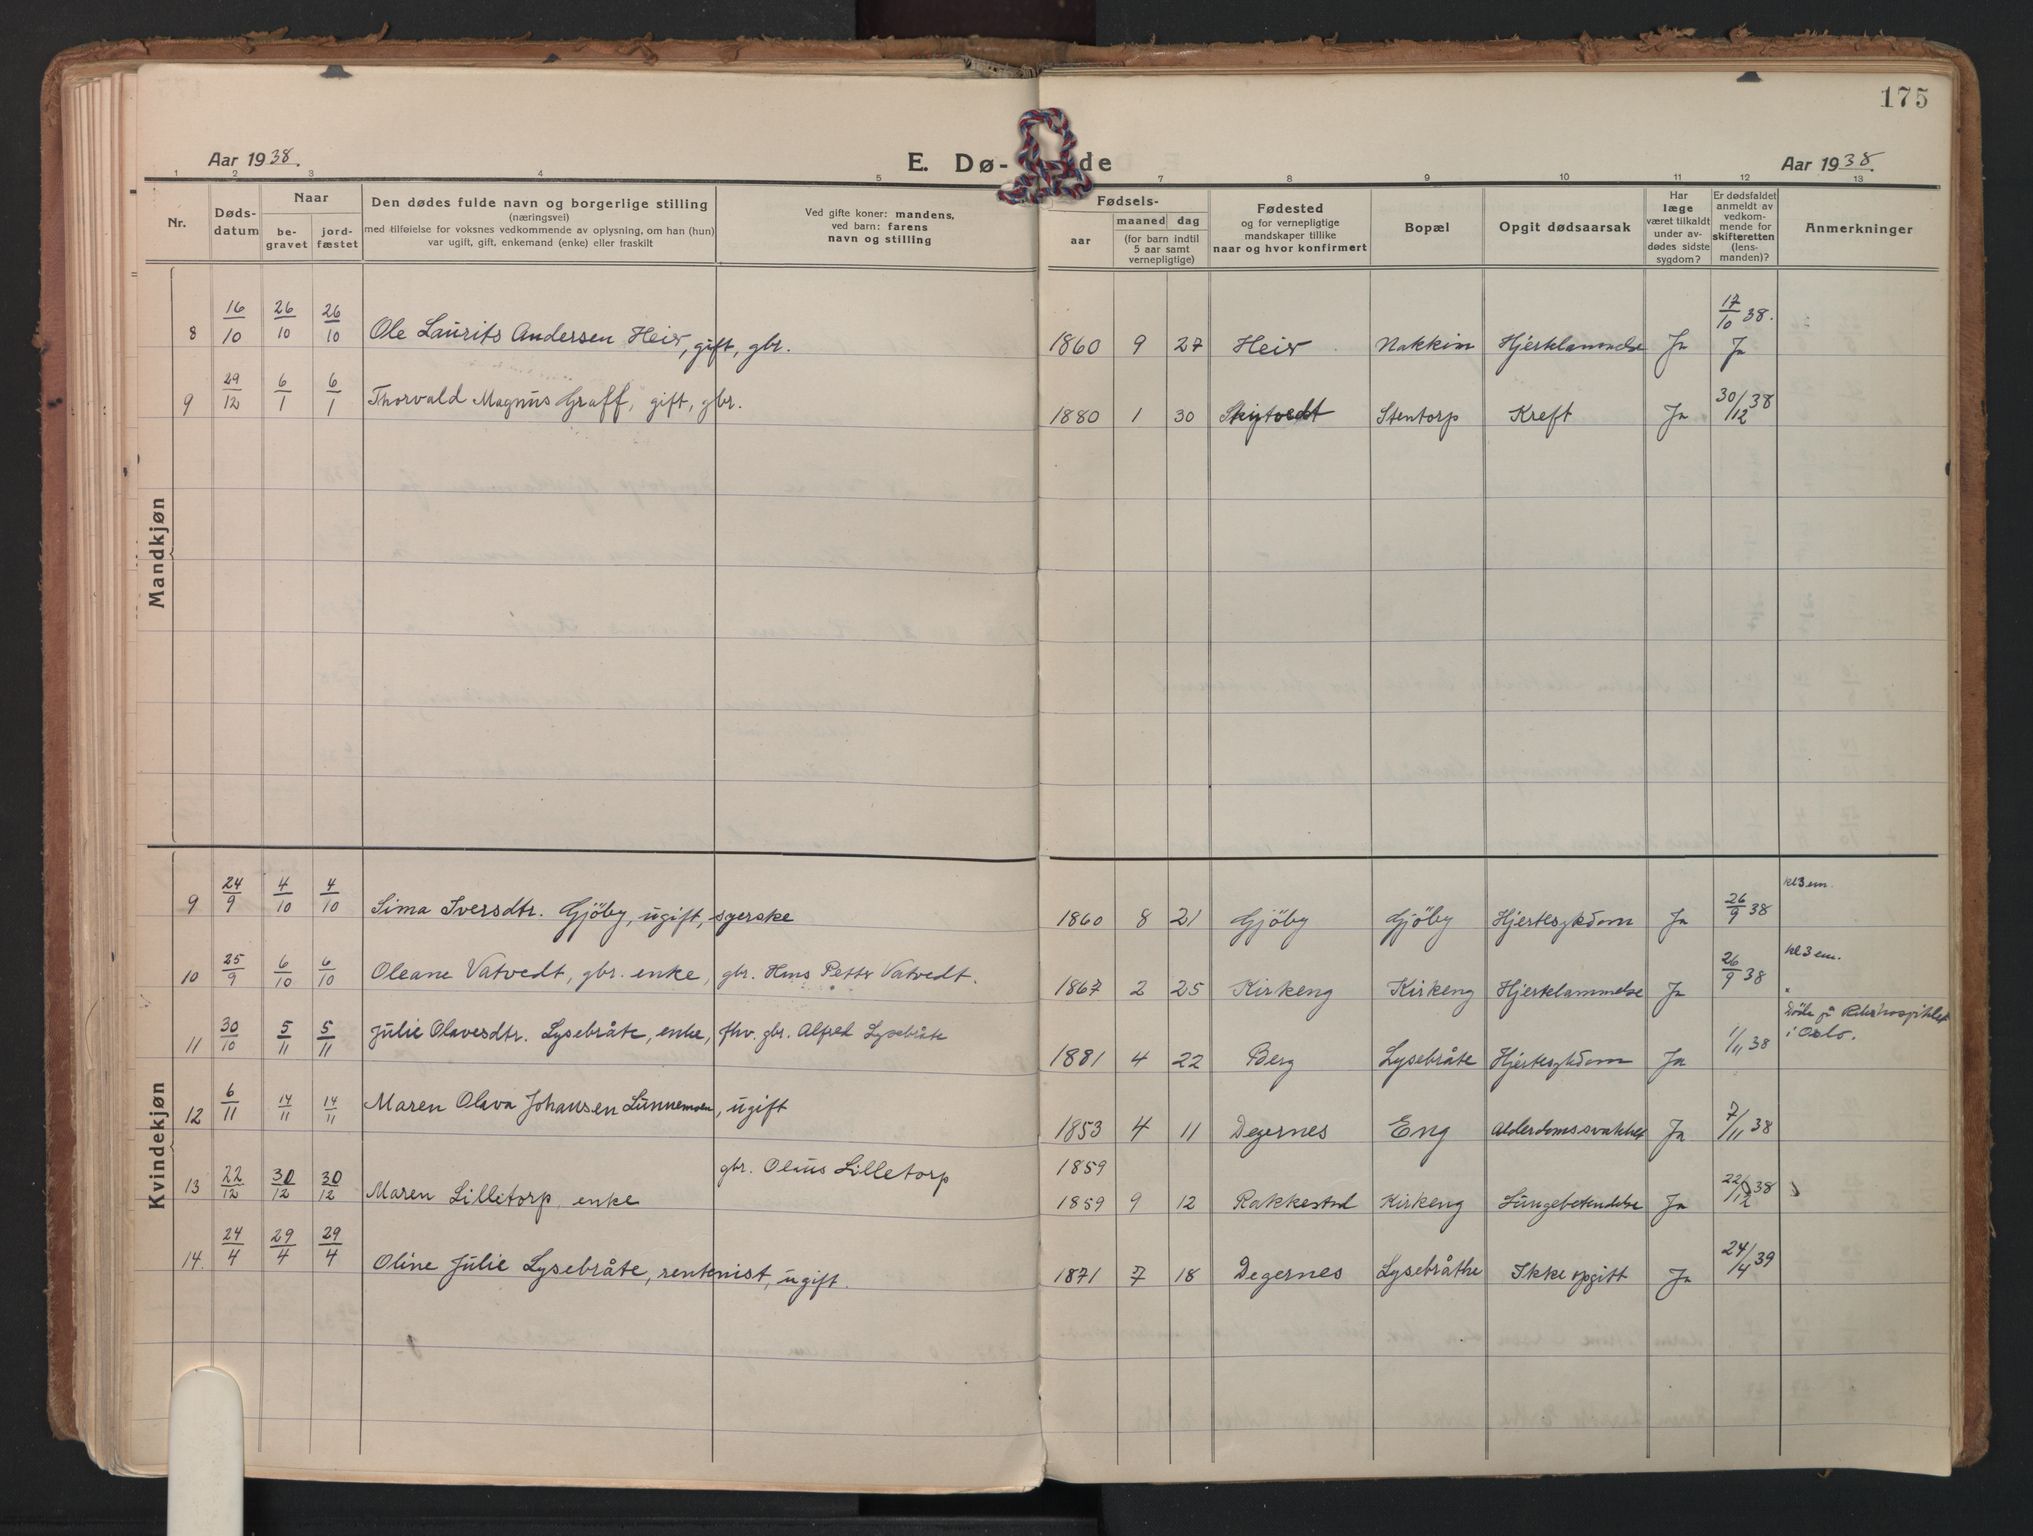 175
Aar 1938.
E. Dø- de
Aar 1938.
1 2 3 4 5 7 8 9 10 11 12 13
Nr.
Døds-
datum
Naar
be-
gravet
jord-
fæstet
Den dødes fulde navn og borgerlige stilling
(næringsvei)
med tilføielse for voksnes vedkommende av oplysning, om han (hun)
var ugift, gift, enkemand (enke) eller fraskilt
Ved gifte koner: mandens,
ved barn: farens
navn og stilling
Fødsels-
aar
maaned dag
(for barn indtil
5 aar samt
vernepligtige)
Fødested
og for vernepligtige
mandskaper tillike
naar og hvor konfirmert
Bopæl
Opgit dødsaarsak
Har
læge
været tilkaldt
under av-
dødes sidste
sygdom?
Er dødsfaldet
anmeldt av
vedkom-
mende for
skifteretten
(lens-
manden)?
Anmerkninger
Mandkjøn
8 16/10 26/10 26/10 Ole Laurits Andersen Heir, gift, gbr. 1860 9 27 Heir Nakkim Hjerklammelse Ja 17/10 38. Ja
9 29/12 6/1 6/1 Thorvald Magnus Graff, gift, gbr. 1880 1 30 Skiptvedt Stentorp Kreft Ja 30/12 38
Kvindekjøn
9 24/9 4/10 4/10 Sima Iversdtr. Gjöby, ugift, syerske 1860 8 21 Gjöby Gjöby Hjertesykdom Ja 26/9 38 kl 3 em.
10 25/9 6/10 6/10 Oleane Vatvedt, gbr. enke, gbr. Hans Petter Vatvedt. 1867 2 25 Kirkeng Kirkeng Hjerklammelse Ja 26/9 38 kl 3 em.
11 30/10 5/11 5/11 Julie Olavesdtr. Lysebråte, enke, fhv. gbr. Alfred Lysebråte 1881 4 22 Berg Lysebråte Hjertesykdom Ja 1/11 38 Döde på Rikshospitalet
i Oslo.
12 6/11 14/11 14/11 Maren Olava Johansen Lunnemoen, ugift 1853 4 11 Degernes Eng Alderdomssvakhet Ja 7/11 38
13 22/12 30/12 30/12 Maren Lilletorp, enke gbr. Olaus Lilletorp 1859
1859 9 12 Rakkestad Kirkeng Lungebetendelse Ja 22/12 38
14. 24/4 29/4 29/4 Oline Julie Lysebråte, rentenist, ugift. 1871 7 18 Degernes Lysebråthe Ikke opgitt Ja 24/4 39